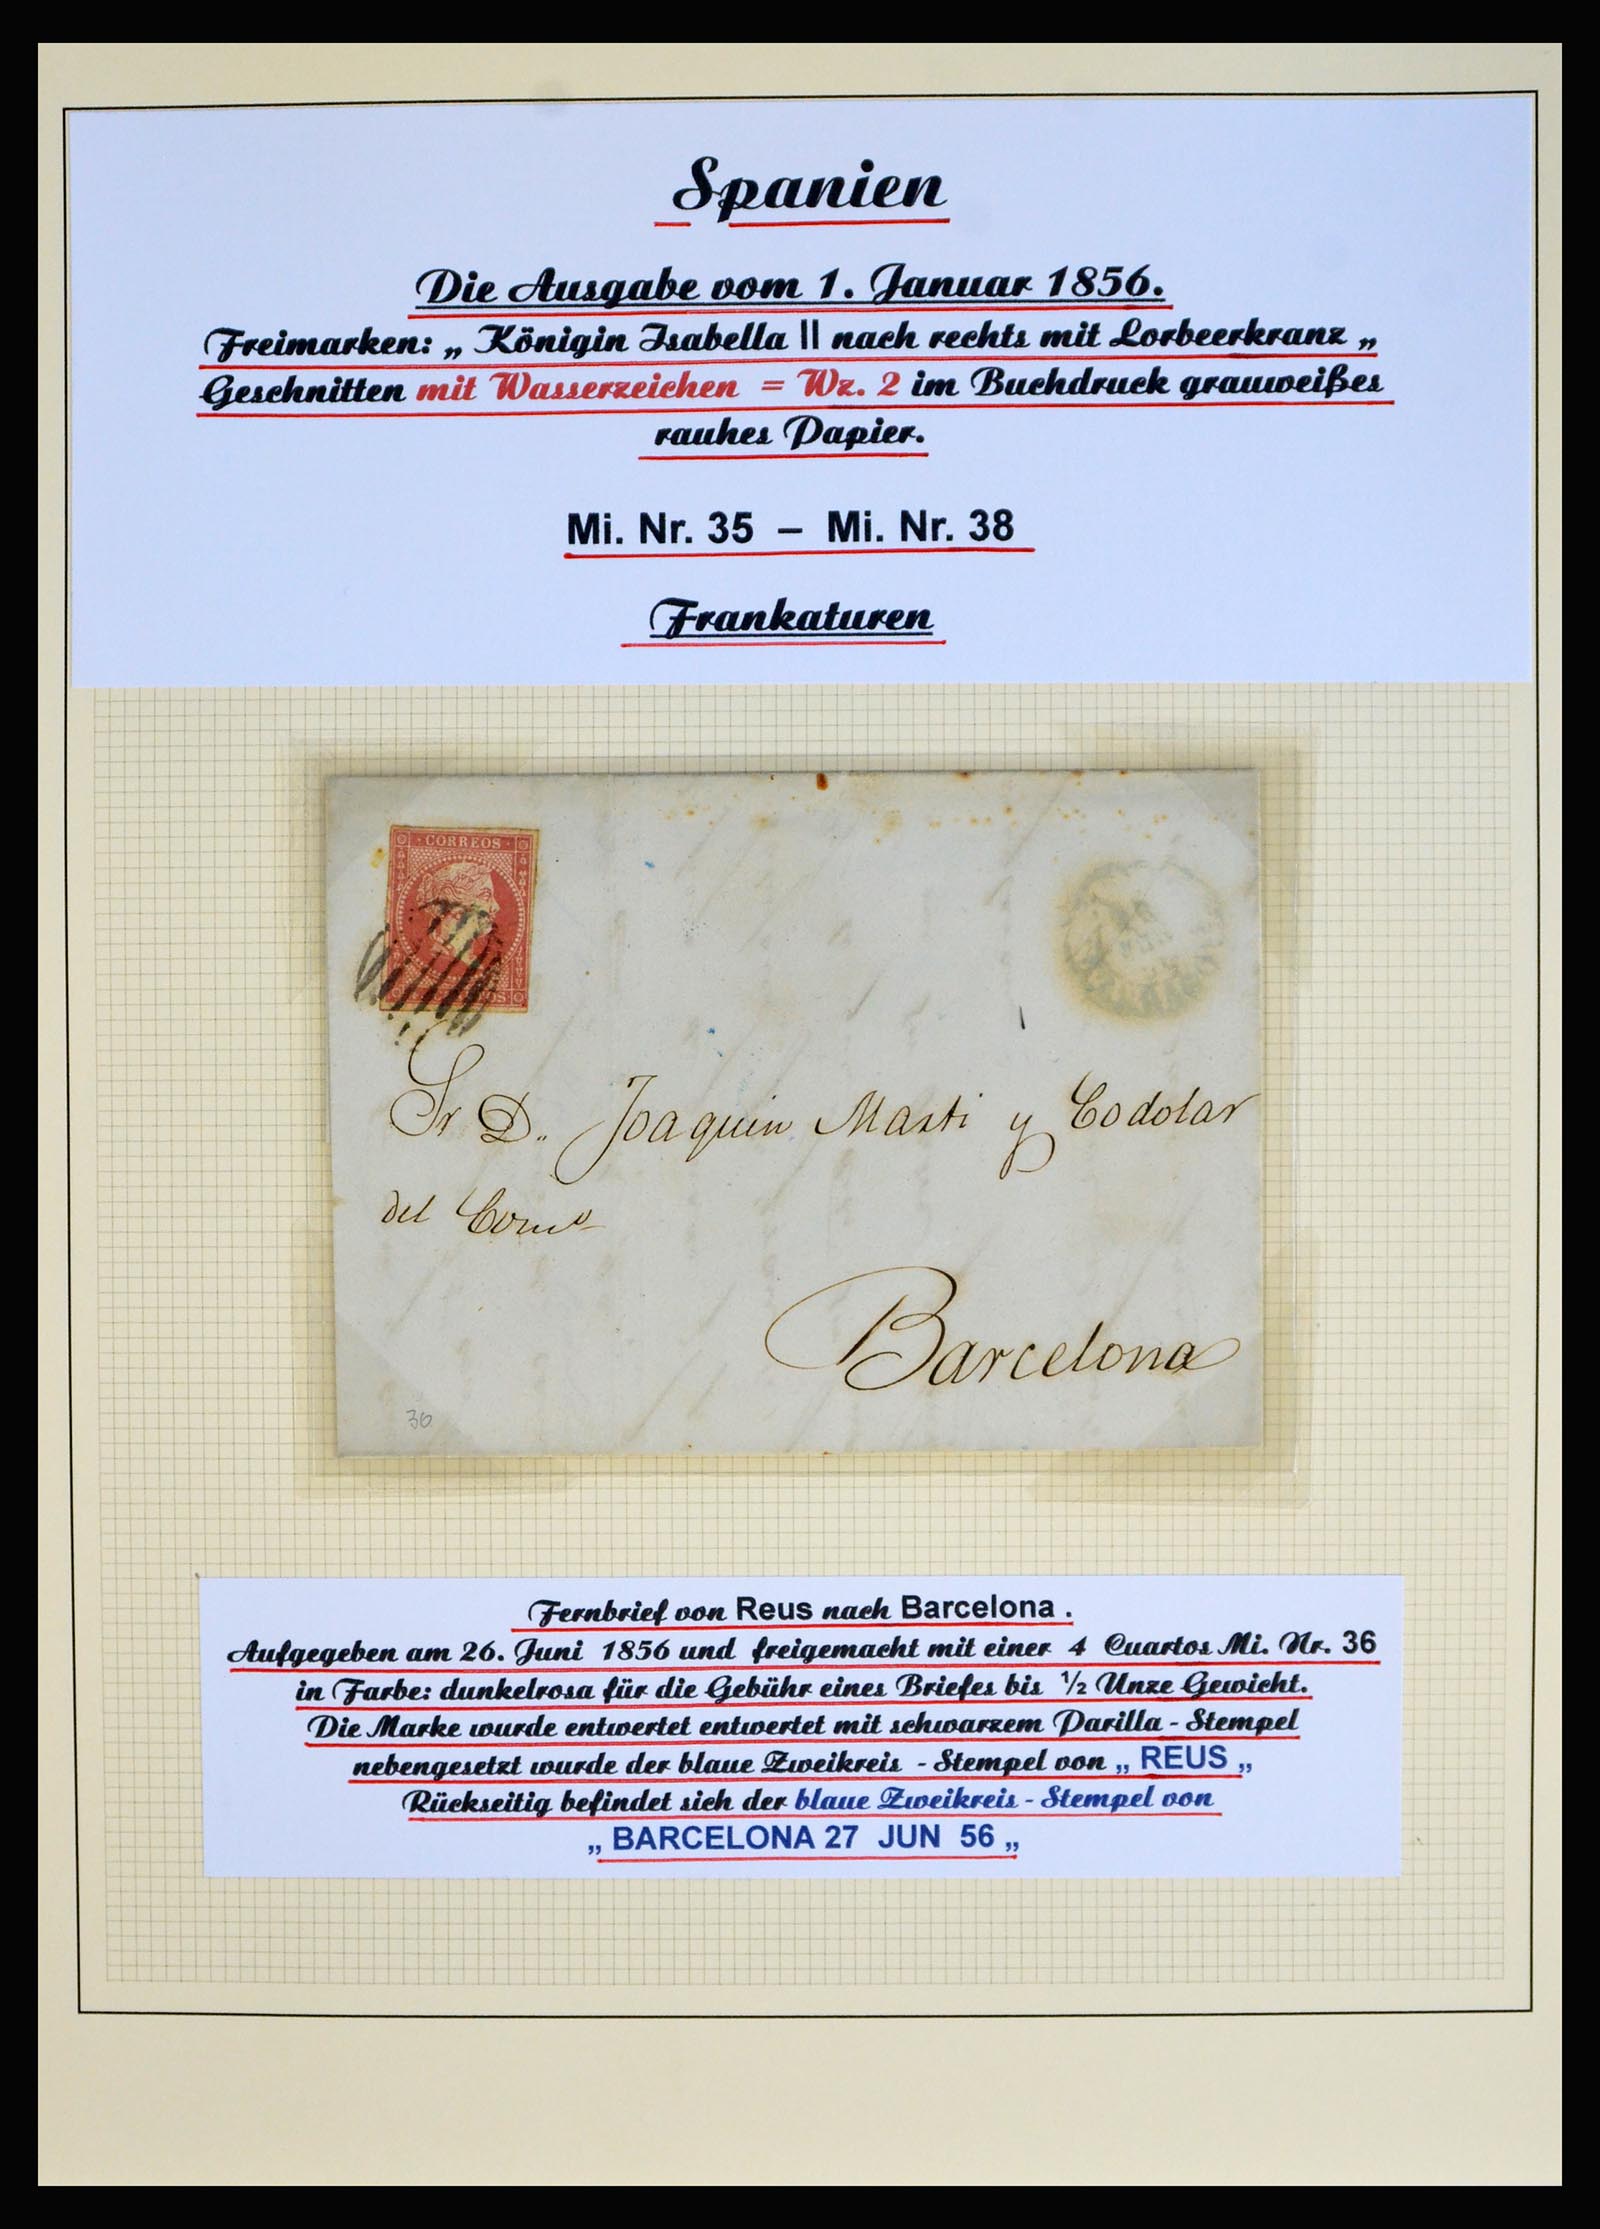 Spanien
Die Ausgabe vom 1. Januar 1856.
Freimarken: „ Königin Isabella II nach rechts mit Lorbeerkranz „
Geschnitten mit Wasserzeichen = Wz. 2 im Buchdruck grauweißes
rauhes Papier.
Mi. Nr. 35 – Mi. Nr. 38
Frankaturen
CORREOS
Sr D. Joaquin Marti y Codolar
del Comº
Barcelona
36
Fernbrief von Reus nach Barcelona .
Aufgegeben am 26. Juni 1856 und freigemacht mit einer 4 Cuartos Mi. Nr. 36
in Farbe: dunkelrosa für die Gebühr eines Briefes bis ½ Unze Gewicht.
Die Marke wurde entwertet entwertet mit schwarzem Parilla - Stempel
nebengesetzt wurde der blaue Zweikreis - Stempel von „ REUS „
Rückseitig befindet sich der blaue Zweikreis - Stempel von
„ BARCELONA 27 JUN 56 „